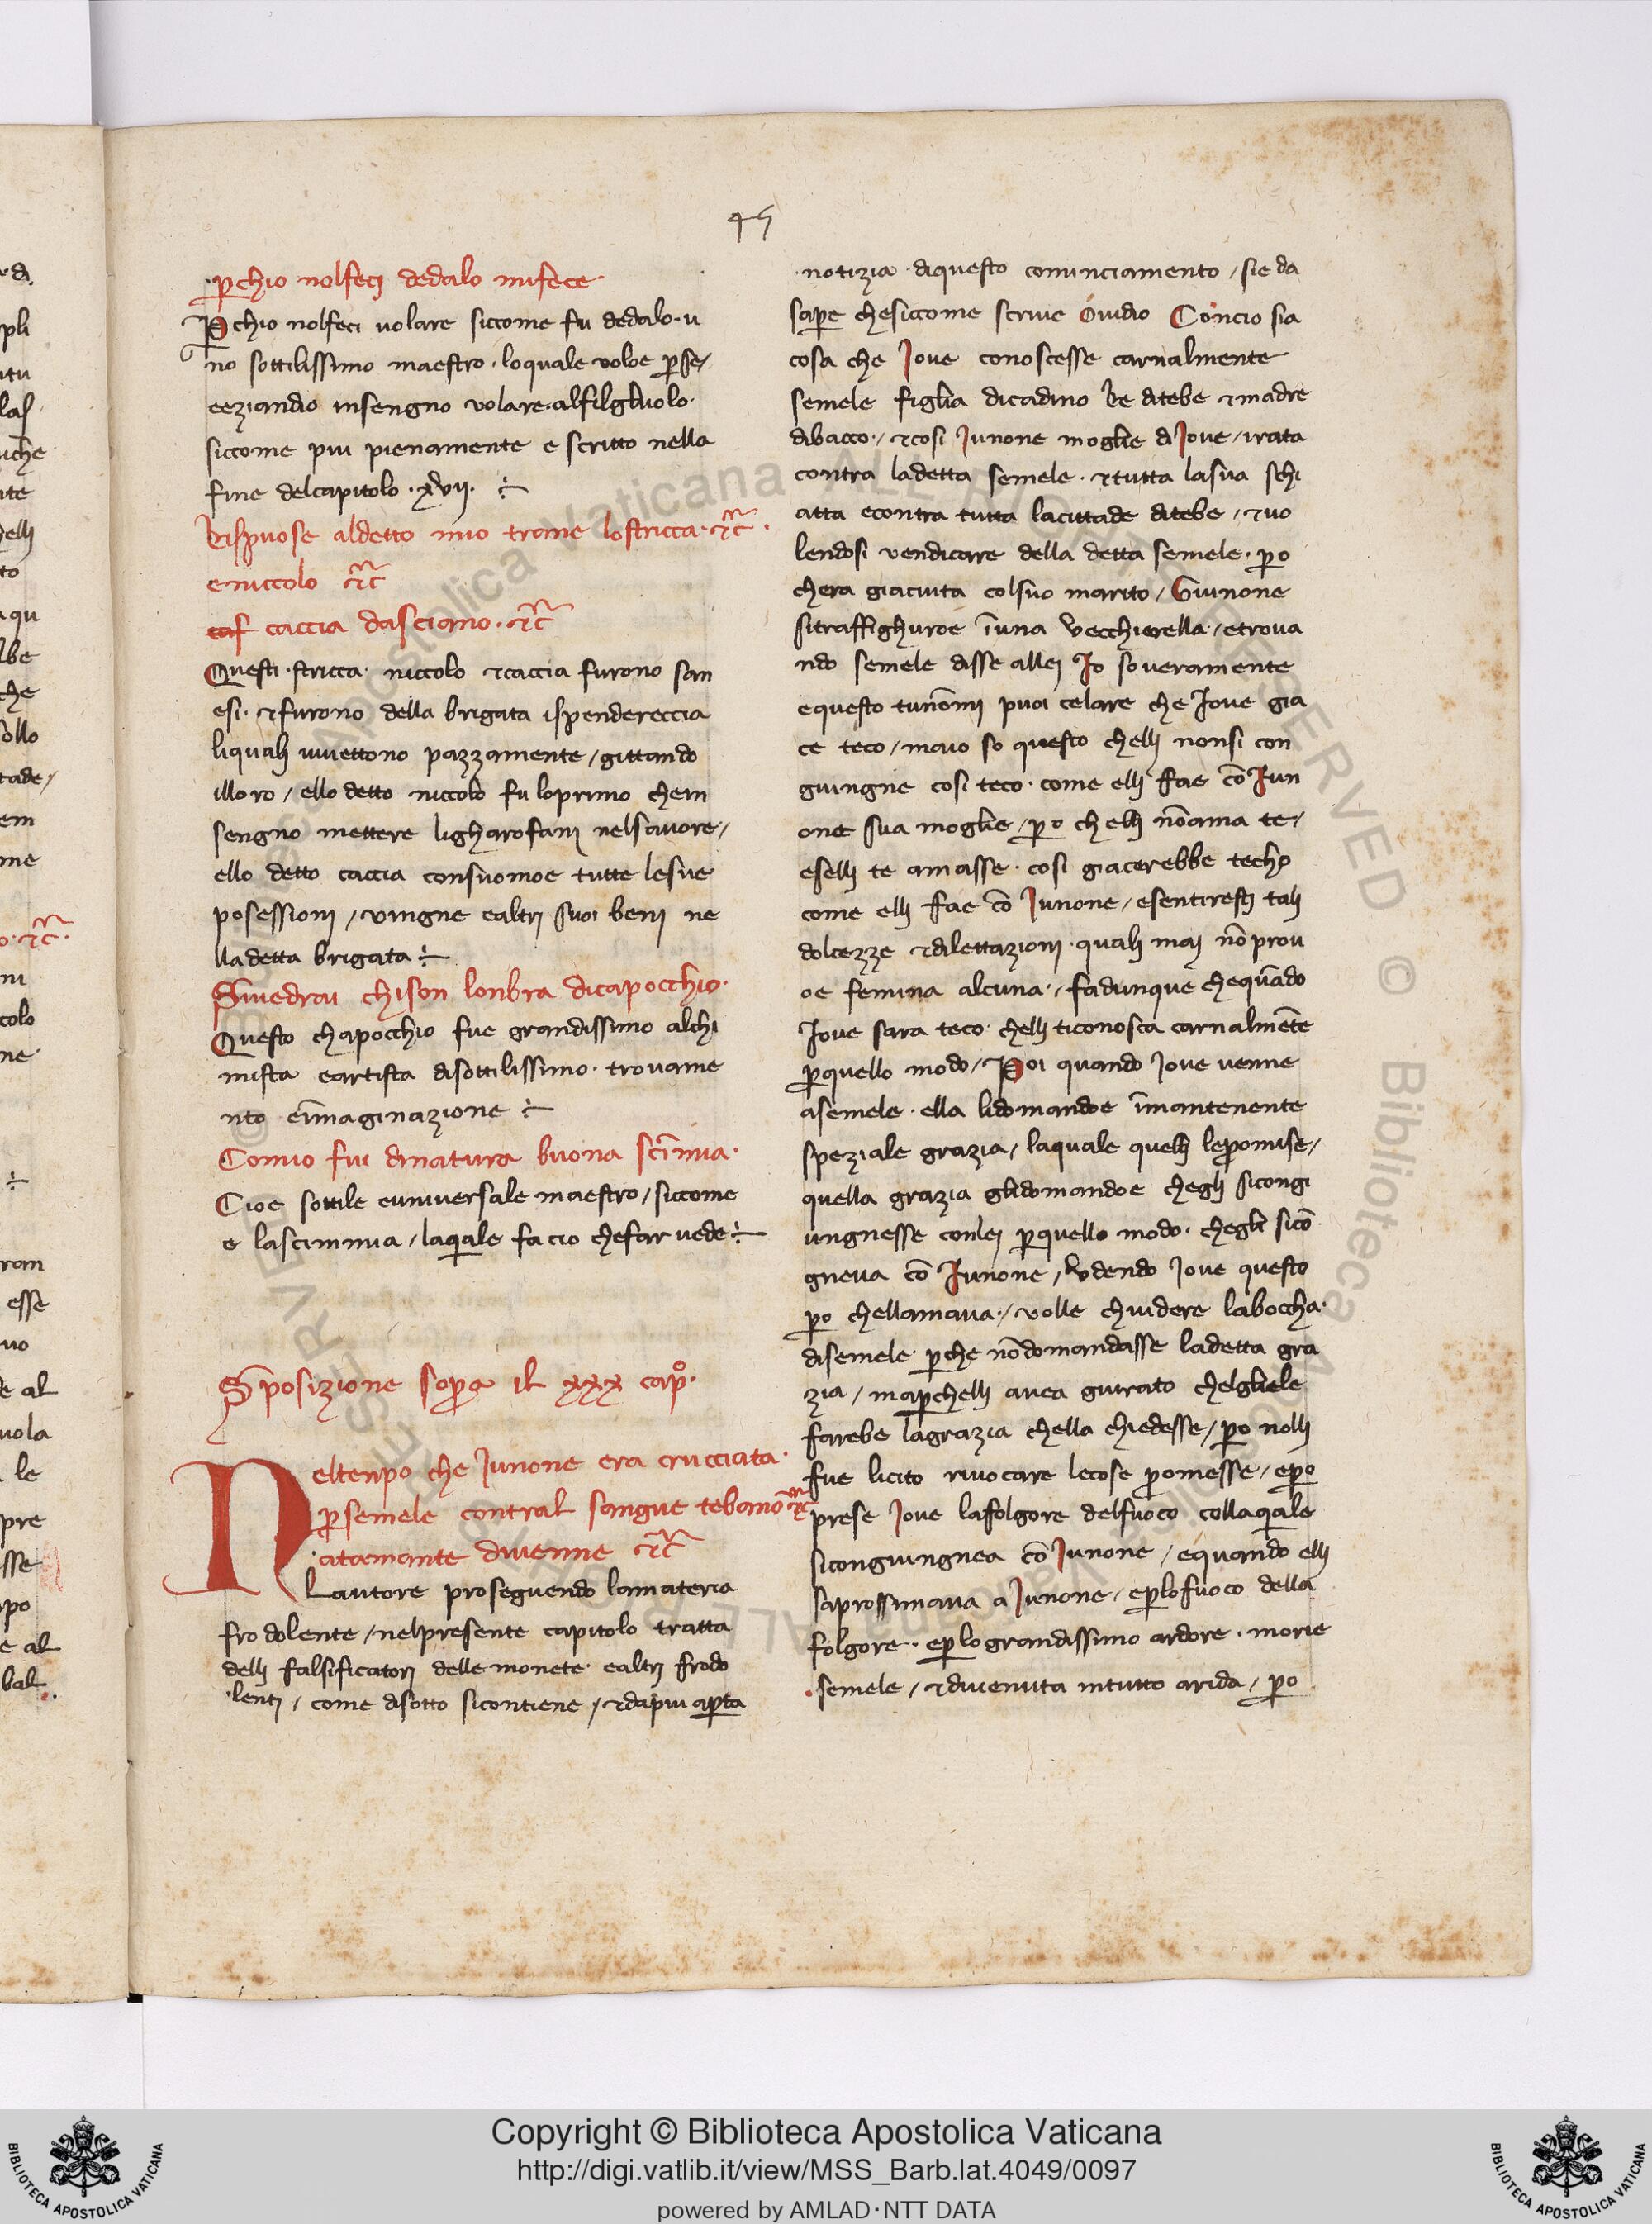 45
perchio nolfecj dedalo mifece.
Perchio nolfeci uolare siccome fu dedalo. u
no sottilissimo maestro. loquale voloe perse/
eeziandio insengno volare. alfilgluolo.
siccome piu pienamente e scritto nella
fine delcapitolo. xvij.
Rispuose aldetto mio trane lostricca. etc.
e niccolo etc
caccia dasciano. etc
Questi. stricca. niccolo et caccia furono san
esi. et furono della brigata ispendereccia
liqualj uiuettono pazzamente / gittando
illoro / ello detto niccolo fu loprimo chein
sengno mettere ligharofanj nelsauore /
ello detto caccia consuomoe tutte lesue
posessionj / vingne ealtrj suoi benj ne
lladetta brigata
Siuedrai chison lonbra dicapocchio.
Questo chapocchio fue grandissimo alchi
mista eartista disottilissimo. trouame
nto eimmaginazione
Comio fui dinatura buona scimmia.
Cioe sottile euniuersale maestro / siccome
e lascimmia / laquale fa cio chefar uede
Sposizione sopra il xxx capo.
Neltenpo che Junone era crucciata.
persemele contral sangue tebano etc
atamante diuenne etc
Lautore proseguendo lamateria
frodolente / nelpresente capitolo tratta
dellj falsificatorj delle monete. ealtrj frodo
lentj / come disotto sicontiene / et dapiu aperta
notizia diquesto comunciamento / sie da
sapere chesiccome scriue Ouidio Concio sia
cosa che Joue conoscesse carnalmente
semele figlia dicadino Re ditebe et madre
dibacco. / et cosi Junone moglie di Joue / irata
contra ladetta semele. et tutta lasua schi
atta econtra tutta lacittade ditebe / et uo
lendosi vendicare della detta semele. pero
chera giaciuta colsuo marito / Giunone
sitraffighuroe inuna Vecchierella. / etroua
ndo semele disse allej Io soueramente
equesto tunonmj puoi celare che Joue gia
ce teco / maio so questo chellj nonsi con
giungne cosi teco. come ellj fae con Jun
one sua moglie / pero chellj nonama te /
esellj te amasse. cosi giacerebbe techo
come ellj fae con Junone / esentirestj talj
dolcezze et dilettazionj. qualj maj non prou
oe femina alcuna. / fadunque chequando
Joue sara teco. chellj ticonosca carnalmente
perquello modo / Poi quando Joue uenne
asemele. ella lidomandoe inmantenente
speziale grazia / laquale quellj lepromise /
quella grazia glidomandoe cheglj sicongi
ungnesse conlej perquello modo. chegli sicon
gneua con Junone / Vdendo Joue questo
pero chellamaua. / volle chiudere laboccha.
disemele perche nondomandasse ladetta gra
zia / maperchellj auea giurato chelgliele
farebe lagrazia chella chiedesse / pero nollj
fue licito riuocare lecose promesse / epero
prese Joue lafolgore delfuoco collaquale
sicongiungnea con Junone / equando ellj
saprossimaua a Junone / eperlofuoco della
folgore. eperlograndissimo ardore. morie
semele / et diuenuta intutto arida / pero
Copyright © Biblioteca Apostolica Vaticana
http://digi.vatlib.it/view/MSS_Barb.lat.4049/0097
powered by AMLAD·NTT DATA
BIBLIOTECA APOSTOLICA VATICANA
BIBLIOTECA APOSTOLICA VATICANA